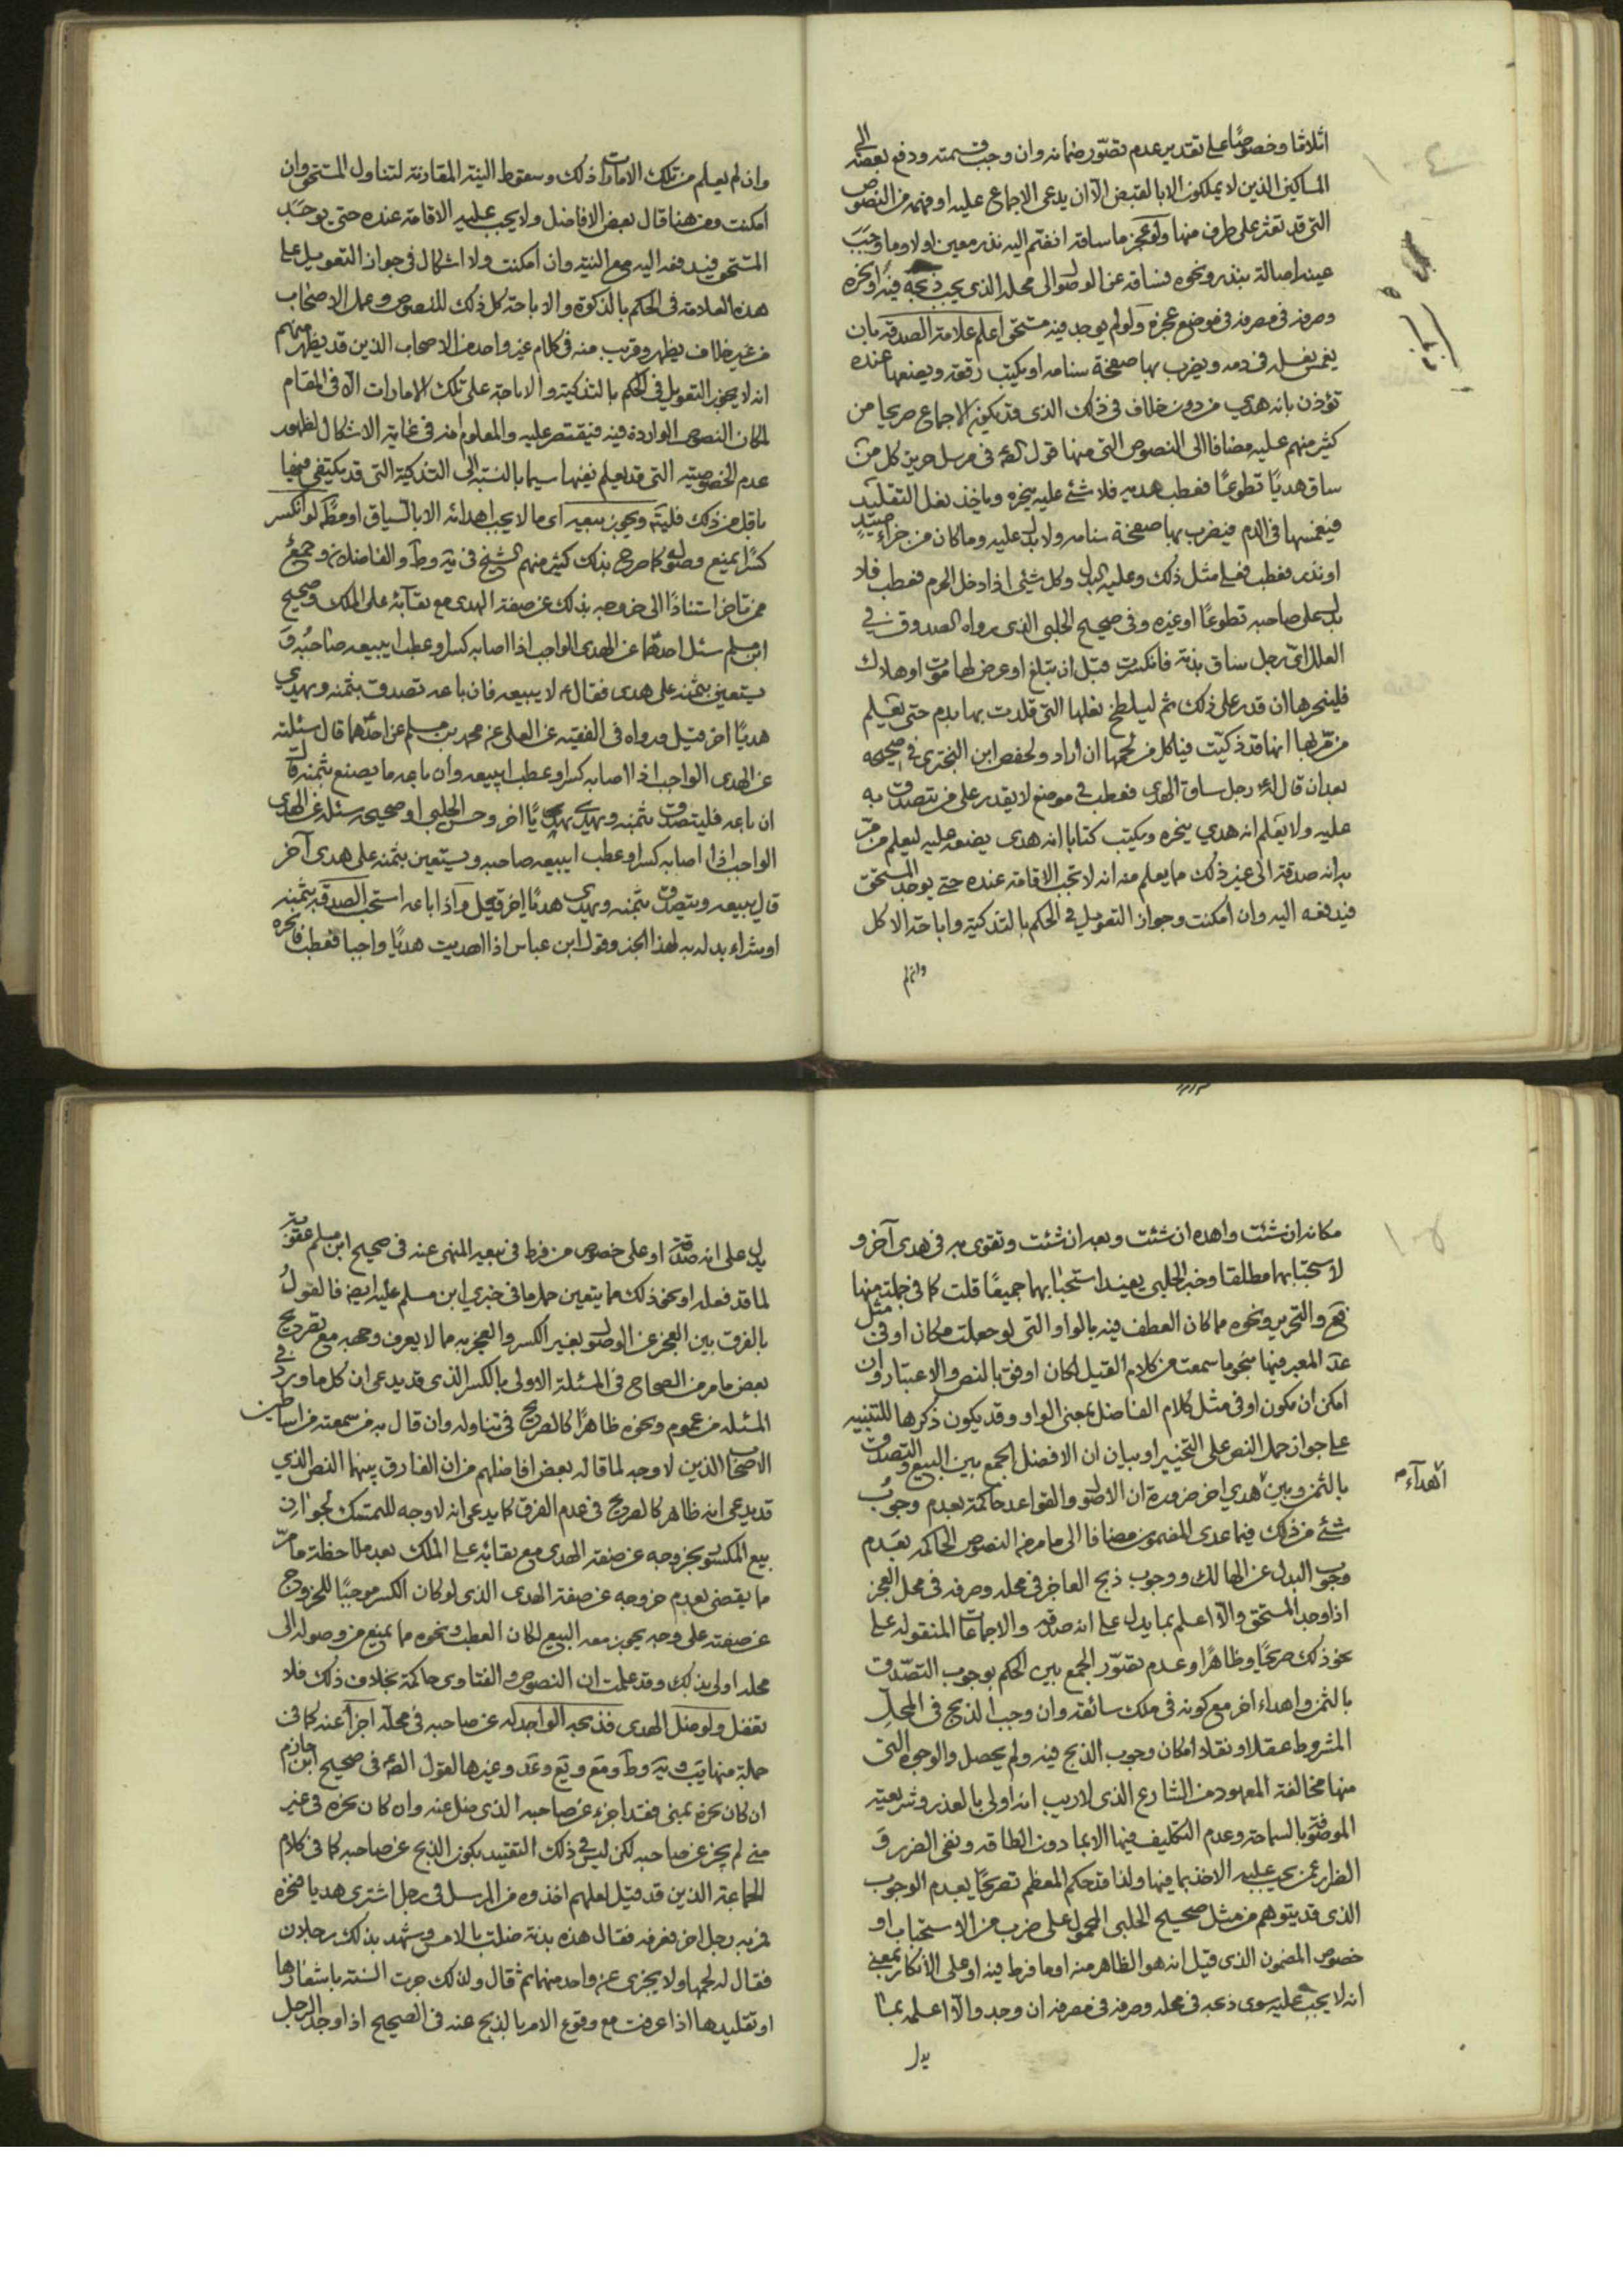 اثلاثا وخصوصًا على تقدير عدم تصوّر ضمانه وان وجب قسمته ودفع بعضه الى
المساكين الذين لا يملكون الا بالقبض الا ان يدعى الاجماع عليه او فهمه من النصوص
التى قد تعثر على طرف منها ولو عجز ما ساقه انضم اليه نذر معين اولا وما وجب
عينه اصالة بنذر ونحوه فساقه عن الوصول الى محله الذى يجب ذبحه فيه او نحره
وصرفه فى مصرفه فى موضع عجزه ولو لم يوجد فيه مستحق اعلم علامة الصدقة بان
يغمس نعله فى دمه ويضرب بها صفحة سنامه او يكتب رقعة ويضعها عنده
تؤذن بانه هدى من دون خلاف فى ذلك الذى قد يكون الاجماع صريحا من
كثير منهم عليه مضافا الى النصوص التى منها قول فى مرسل حريز كل من
ساق هديًا تطوعًا فعطب هديه فلا شئ عليه ينحره وياخذ نعل التقليد
فيغمسها فى الدم فيضرب بها صفحة سنامه ولا بدل عليه وما كان من جزاء صيد
او نذر فعطب فعل مثل ذلك وعليه البدل وكل شئ اذا دخل الحرم فعطب فلا
بدل على صاحبه تطوعًا او غيره وفى صحيح الحلبى الذى رواه الصدوق فى
العلل اىّ رجل ساق بدنة فانكسرت قبل ان تبلغ او عرض لها موت او هلاك
فلينحرها ان قدر على ذلك ثم ليلطخ نعلها التى قلدت بها بدم حتى يعلم
من مرّ بها انها قد ذكيت فياكل من لحمها ان اراد ولحفص ابن البخترى فى صحيحه
بعد ان قال له رجل ساق الهدى فعطب فى موضع لا يقدر على من يتصدق به
عليه ولا يعلم انه هدي ينحره ويكتب كتابا انه هدى يضعه عليه ليعلم من مرّ
به انه صدقة الى غير ذلك مما يعلم منه انه لا تجب الاقامة عنده حتى يوجد المستحق
فيدفعه اليه وان امكنت وجواز التعويل فى الحكم بالتذكية واباحة الاكل
وان لم
وان لم يعلم من تلك الامارات ذلك وسقوط النية المقارنة لتناول المستحق وان
امكنت ومن هنا قال بعض الافاضل ولا يجب عليه الاقامة عنده حتى يوجد
المستحق فيدفعه اليه مع النية وان امكنت ولا اشكال فى جواز التعويل على
هذه العلامة فى الحكم بالذكوة والاباحة كل ذلك للنصوص وعمل الاصحاب
من غير خلاف يظهر وقريب منه فى كلام غير واحد من الاصحاب الذين قد يظهر منهم
انه لا يجوز التعويل فى الحكم بالتذكية والاباحة على تلك الامارات الا فى المقام
لمكان النصوص الواردة فيه فيقتصر عليه والمعلوم انه فى غاية الاشكال لظهور
عدم الخصوصية التى قد يعلم نفيها سيما بالنسبة الى التذكية التى قد يكتفى فيها
باقل من ذلك ويجوز بيعه اى ما لا يجب اهدائه الا بالسياق او مطلقا لو انكسر
كسرًا يمنع وصوله كما صرح بذلك كثير منهم الشيخ فى ية وط والفاضلان وجمع
ممن تاخر استنادًا الى خروجه بذلك عن صفة الهدى مع بقائه على الملك وصحيح
ابن مسلم سئل احدهما عن الهدى الواجب اذا اصابه كسر او عطب ايبيعه صاحبه و
يستعين بثمنه على هدى فقال لا يبيعه فان باعه تصدق بثمنه ويهدي
هديًا اخر قيل ورواه فى الفقيه عن العلى عن محمد بن مسلم عن احدهما قال سئلته
عن الهدى الواجب اذا اصابه كسر او عطب ايبيعه وان باعه ما يصنع بثمنه قال
ان باعه فليتصدق بثمنه ويهدى هديًا اخر وحسن الحلبى او صحيحه سئله عن الهدى
الواجب اذا اصابه كسر او عطب ايبيعه صاحبه ويستعين بثمنه على هدى آخر
قال يبيعه ويتصدق بثمنه ويهدى هديًا اخر قيل واذا باعه استحب الصدقة بثمنه
او شراء بدله به لهذا الخبر وقول ابن عباس اذا اهديت هديًا واجبا فعطب فانحره
مكانه ان شئت واهده ان شئت وبعه ان شئت وتقوى به فى هدى آخر و
لاستحبابهما مطلقا وخبر الحلبى يفيد استحبابهما جميعًا قلت كما فى جملة منها
يع والتحرير ونحوه مما كان العطف فيه بالواو التى لو جعلت مكان او فى مثل
عد المعبر فيها بنحو ما سمعت من كلام القيل لكان اوفق بالنص والاعتبار وان
امكن ان يكون او فى مثل كلام الفاضل بمعنى الواو وقد يكون ذكرها للتنبيه
على جواز حمل النص على التخيير او بيان ان الافضل الجمع بين البيع والتصدق
بالثمن وبين هدي اخر ضرورة ان الاصول والقواعد حاكمة بعدم وجوب
اهداء
شئ من ذلك فيما عدى المضمون مضافا الى ما مر من النصوص الحاكمة بعدم
وجوب البدل عن الهالك ووجوب ذبح العاجز فى محله وصرفه فى محل العجز
اذا وجد المستحق والا اعلم بما يدل على انه صدقة والاجماعات المنقولة على
نحو ذلك صريحًا وظاهرًا وعدم تصوّر الجمع بين الحكم بوجوب التصدق
بالثمن واهداء اخر مع كونه فى ملك سائقه وان وجب الذبح فى المحلّ
المشروط عقلا ونقلا امكان وجوب الذبح فيه ولم يحصل والوجوه التى
منها مخالفة المعهود من الشارع الذى لا ريب انه اولى بالعذر وشريعته
الموصوفة بالسماحة وعدم التكليف فيها الا بما دون الطاقة ونفى الضرر و
الضرار عمن يجب عليه الاخذ بما فيها ولذا قد حكم المعظم تصريحًا بعدم الوجوب
الذى قد يتوهم من مثل صحيح الحلبى المحمول على ضرب من الاستحباب او
خصوص المضمون الذى قيل انه هو الظاهر منه او ما فرط فيه او على الانكار بمعنى
انه لا يجب عليه سوى ذبحه فى محله وصرفه فى مصرفه ان وجد والا اعلمه بما
يدل
يدل على انه صدقة او على خصوص من فرط فى بيعه المنهى عنه فى صحيح ابن مسلم عقوبة
لما قد فعله او نحو ذلك مما يتعين حمل ما فى خبري ابن مسلم عليه ايضا فالقول
بالفرق بين العجز عن الوصول بغير الكسر والعجز به مما لا يعرف وجهه مع تصريح
بعض ما مر من الصحاح فى المسئلة الاولى بالكسر الذى قد يدعى ان كل ما ورد فى
المسئله من عموم ونحوه ظاهرًا كالصريح فى تناوله وان قال به من سمعته من اساطين
الاصحاب الذين لا وجه لما قاله بعض افاضلهم من ان الفارق بينهما النص الذي
قد يدعى انه ظاهر كالصريح فى عدم الفرق كما يدعى انه لا وجه للتمسك لجواز
بيع المكسور بخروجه عن صفة الهدى مع بقائه على الملك بعد ملاحظة ما مرّ
ما يقضى بعدم خروجه عن صفة الهدى الذى لو كان الكسر موجبًا للخروج
عن صفته على وجه يجوز معه البيع لكان العطب ونحوه مما يمنع من وصوله الى
محله اولى بذلك وقد علمت ان النصوص والفتاوى حاكمة بخلاف ذلك فلا
تغفل ولو ضل الهدى فذبحه الواجد له عن صاحبه فى محله اجزأ عنه كما فى
جملة منها يب وية وط ومع ويع وعد وغيرها لقول فى صحيح ابن حازم
ان كان نحره بمنى فقد اجزء عن صاحبه الذى ضل عنه وان كان نحره فى غير
منى لم يجز عن صاحبه لكن ليس فى ذلك التقييد بكون الذبح عن صاحبه كما فى كلام
الجماعة الذين قد قيل لعلهم اخذوه من المرسل فى رجل اشترى هديا فنحره
فمر به رجل اخر فعرفه فقال هذه بدنة ضلت بالامس وشهد بذلك رجلان
فقال له لحمها ولا يجزى عن واحد منهما ثم قال ولذلك جرت السنة باشعارها
او تقليدها اذا عرفت مع وقوع الامر بالذبح عنه فى الصحيح اذا وجد الرجل